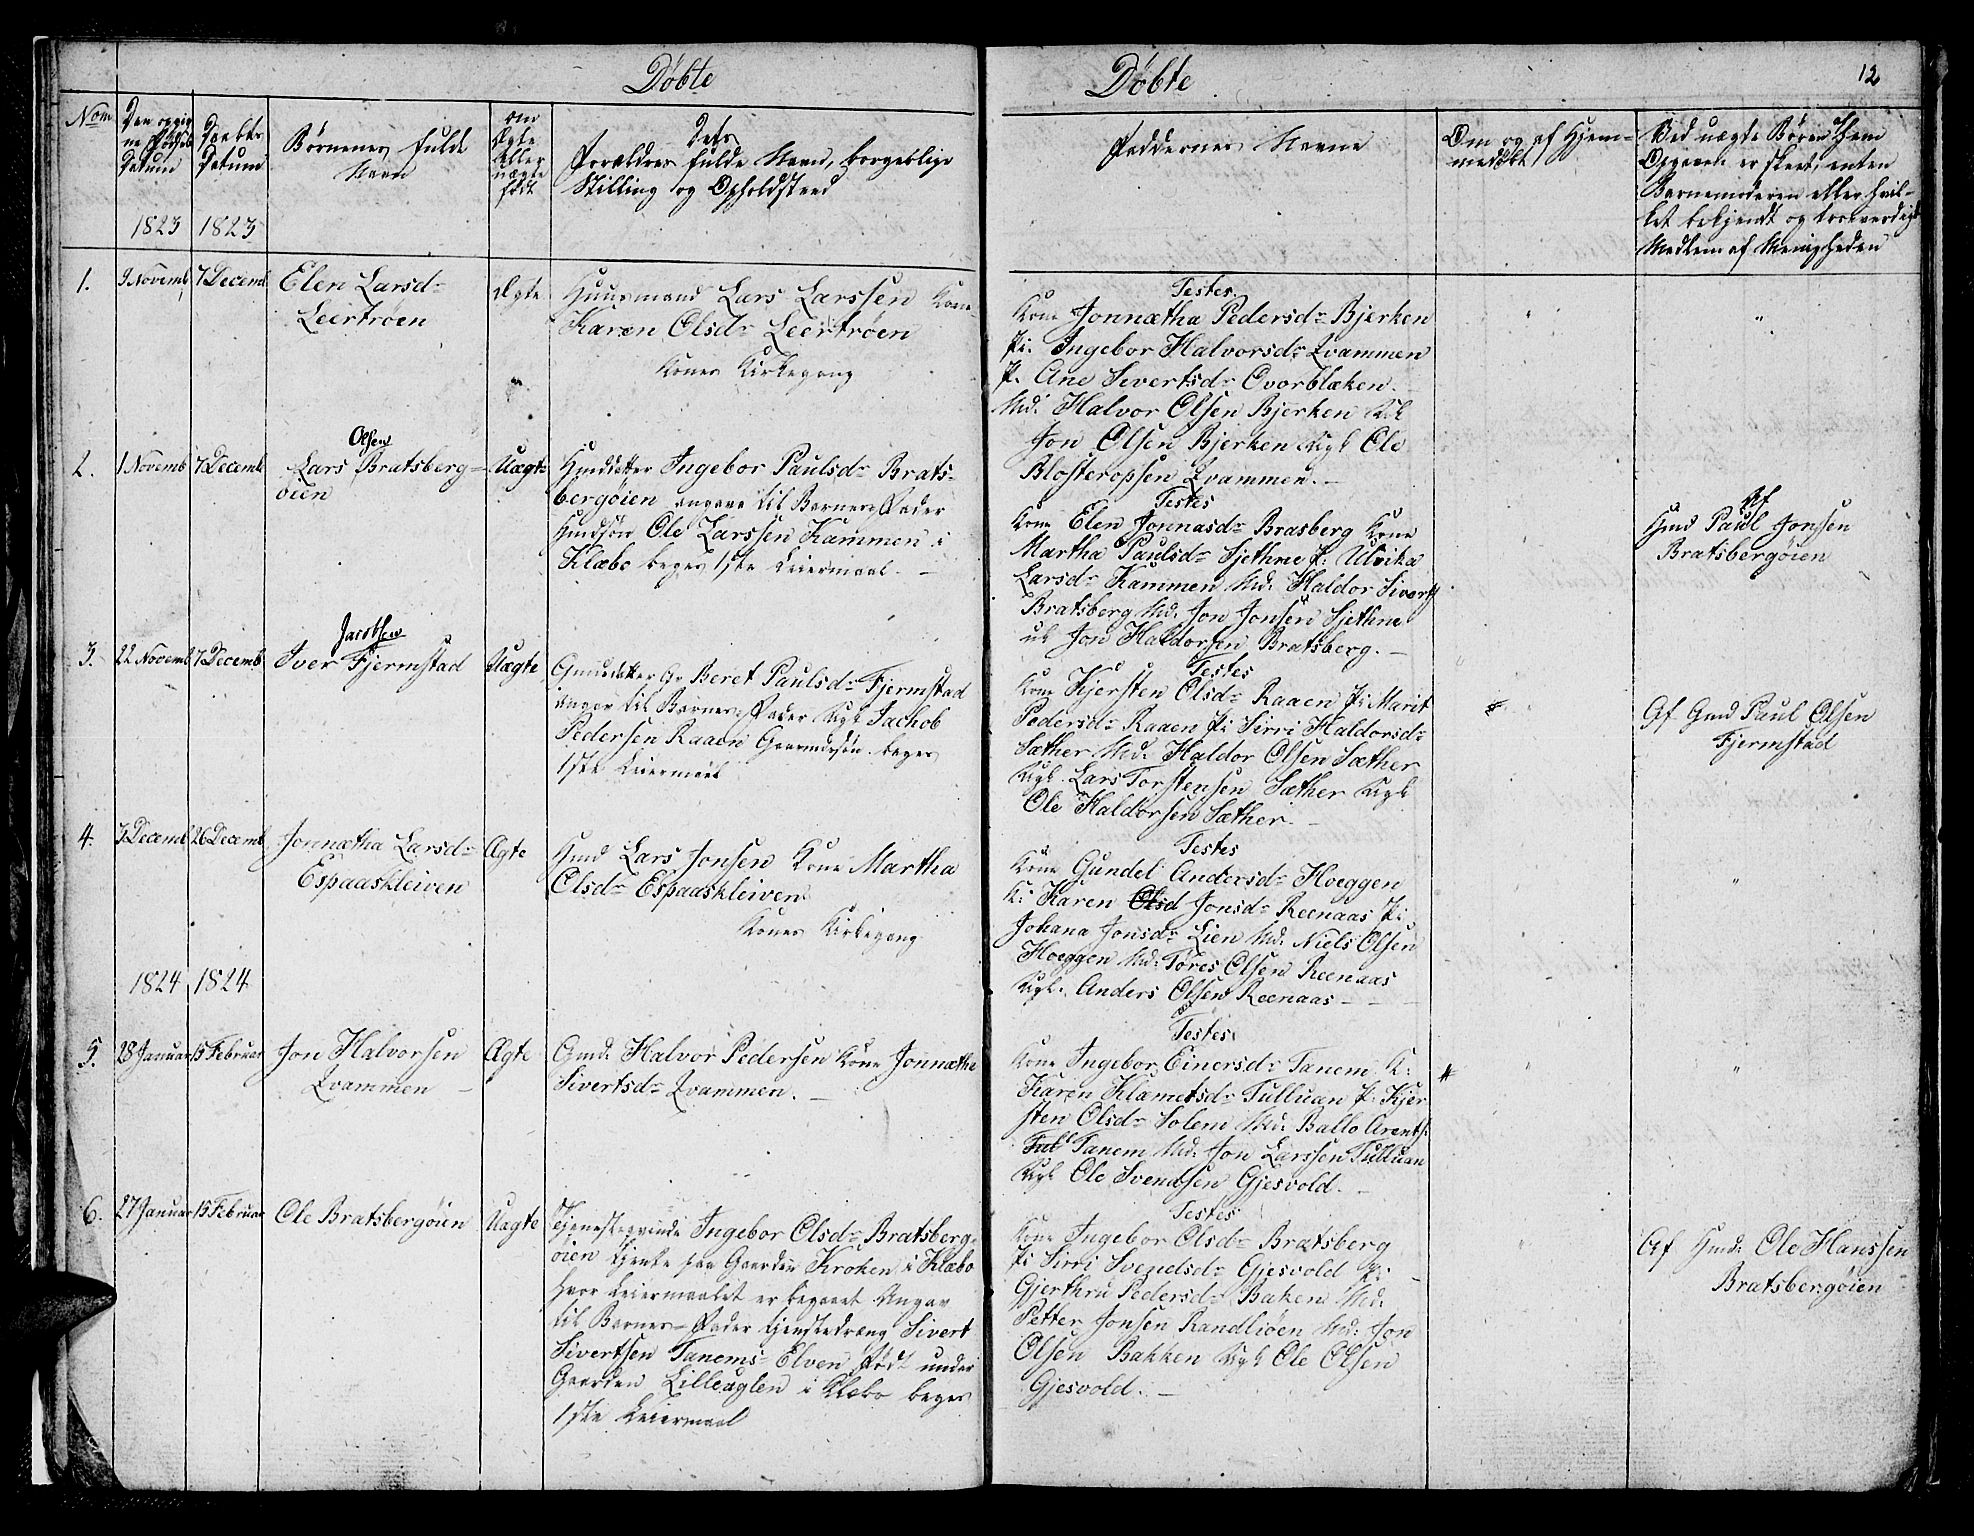 Døbte
Døbte
12
Nom
Den opgiv
ne Fødsels
Datum
1823
Daabs
Datum
1823
Børnenes fulde
Navn
om
Ægte
eller
uægte
født
Dets
Forældres fulde Navn, borgerlige
Stilling og Opholdsted
Faddernes Navne
Om og af Hjem-
medøbt
Ved uægte Børn af hvem
Opgaven er skeet, enten
Barnemoderen eller hvil-
ket bekjendt og troeværdigt
Medlem af Menigheden
1.
9 Novemb
7 Decemb
Elen Larsd-
Leertrøen
Ægte
Huusmand Lars Larssen Kone
Karen Olsd- Leertrøen
Kones Kirkegang
Testes
Kone Jonnætha Pedersd- Bjerken
Pi. Ingebor Halvorsd- Qvammen
P. Ane Sivertsd- Ovorblæken.
Md. Halvor Olsen Bjerken
Jon Olsen Bjerken Ugk Ole
Klosteropsen Qvammen. -
2.
1 Novemb
7 Decemb
Olsen
Lars Bratsberg-
øien
Uægte
Hmddatter Ingebor Paulsd- Brats-
bergøien angave til Barnes Fader
Hmdsøn Ole Larssen Kammen i
Klæbo beges 1ste Leiermaal. -
Testes
Kone Elen Jonnasd- Brasberg Kone
Martha Paulsd- Sjethne P. Ulrika
Larsd- Kammen Md. Haldor Siverts
Bratsberg Md. Jon Jonsen Sjethne
uk Jon Haldorsen Bratsberg. -
Af
Hmd Paul Jonsen
Bratsbergøien
3.
22 Novemb
7 Decemb
Jacobsen
Iver Fjermstad
Uægte
Beret Paulsd- Fjermstad
angav til Barnes Fader Ugk Jachob
Pedersen Raaen Gaardmdsøn beges
1ste Leiermaal
Testes
Kone Kjersten Olsd- Raaen P. Marit
Pedersd- Raaen P. Sirri Haldorsd-
Sæther Md. Haldor Olsen Sæther
Ugk Lars Torstensen Sæther Ugk
Ole Haldorsen Sæther. -
Af Gmd Paul Olsen
Fjermstad
4.
3 Decemb
26 Decemb
Jonnætha Larsd-
Espaaskleiven
Ægte
Hmd Lars Jonsen Kone Martha
Olsd- Espaaskleiven
Kones Kirkegang
Testes
Kone Gundel Andersd- Hoeggen
K. Karen Olsd Jonsd- Reenaas P.
Johana Jonsd- Lien Md. Niels Olsen
Hoeggen Md. Tøres Olsen Reenaas
Ugk. Anders Olsen Reenaas -
1824
1824
5.
28 Januar
15 Februar
Jon Halvorsen
Qvammen -
Ægte
Gmd. Halvor Pedersen Kone Jonnætha
Sivertsd- Qvammen. -
Testes
Kone Ingebor Einersd- Tanem K.
Karen Klametsd- Tulluan P. Kjer
sten Olsd- Solem Md. Ballo Arents.
Tull Tanem Md. Jon Larssen Tulluan
Ugk Ole Svendsen Gjesvold. -
6.
27 Januar
15 Februar
Ole Bratsbergøien
Uægte
Tjenestqvinde Ingebor Olsd- Bratsberg-
øien tjente paa Gaarden Kroken i Klæbo
hvor Leiermaalet er begaaet Angav
til Barnes Fader tjenstedræng Sivert
Sivertsen Tanems- Elven født under
Gaarden Lilleuglen i Klæbo beges
1ste Leiermaal
Testes
Kone Ingebor Olsd- Bratsberg
P. Sirri Svendsd- Gjesvold P.
Gjerthru Pedersd- Baken Md.
Petter Jonsen Randliøen Md. Jon
Olsen Bakken Ugk Ole Olsen
Gjesvold. -
Af Hmd. Ole Hanssen
Bratsbergøien